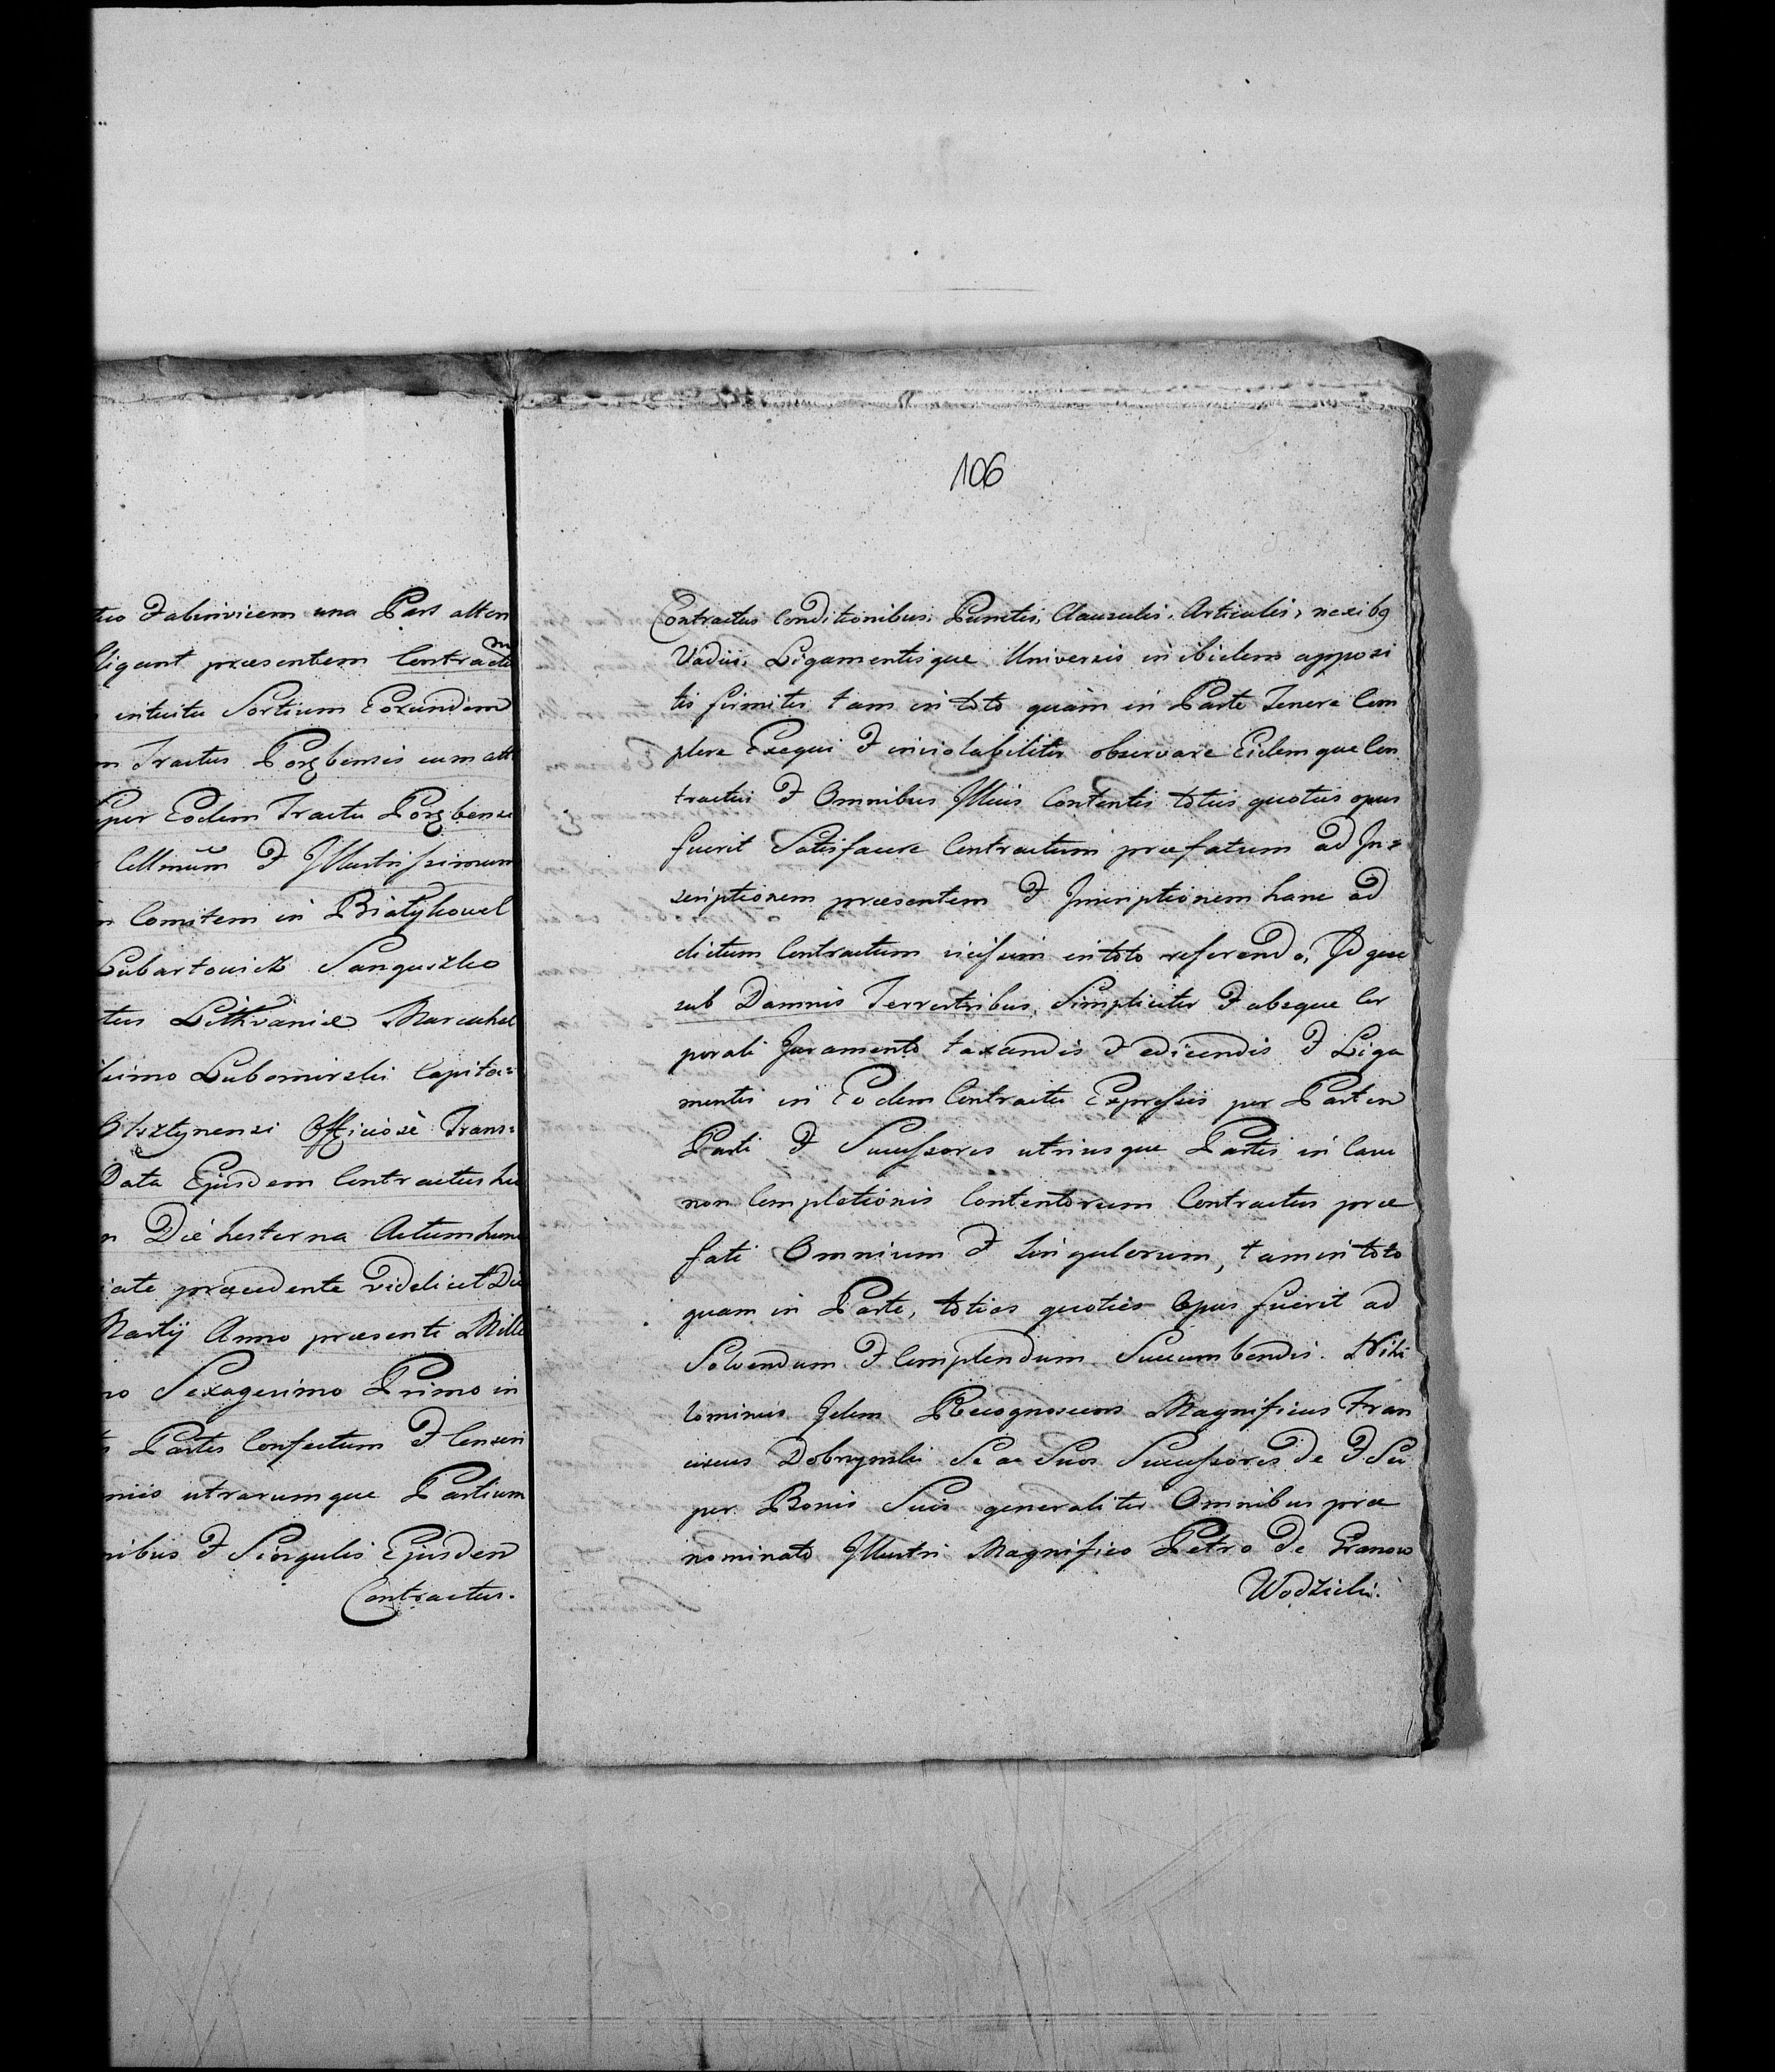 tuo & abinvicem una Pars alteri
ligant præsentem Contractum
intuitu Sortium Eorundem
Tractus Porębensis cum att
per Eodem Tractu Porębensi
Cellmum & Illustrissimum
Comitem in Białykowel
Lubartowicz Sanguszko
tus Lithvaniæ Marschal
simo Lubomirski Capita=
Olsztynensi Officiosè Trans=
Data Ejusdem Contractus hu
Die hesterna Actum hunc
iate præcedente videlicet Die
Martij Anno præsenti Mille
no Sexagesimo Primo in
Partes Confectum & Censeri
miis utrarumque Partium
nibus & Singulis Ejusdem
Contractus.
106
Contractus Conditionibus, Punctis, Clausulis, Articulis, nexibq
Vadiis, Ligamentisque Universis in ibidem apposi
tis firmiter tam in toto quàm in Parte Tenere Com
plere Exequi & inviolabiliter observare Eidemque Con
tractui & Omnibus Illius Contentis toties quoties opus
fuerit Satisfacere Contractum præfatum ad In=
scriptionem præsentem & Inscriptionem hanc ad
dictum Contractum vicissim in toto referendo, Idque
sub Damnis Terrestribus Simpliciter & absque Cor
porali Juramento taxandis & edicendis & Liga
mentis in Eodem Contractu Expressis per Partem
Parti & Successores utriusque Partis in Casu
non Completionis Contentorum Contractus præ
fati Omnium & Singulorum, tam in toto
quam in Parte, toties quoties Opus fuerit ad
Solvendum & Complendum Succumbendis. Nihi
lominus Idem Recognoscens Magnificus Fran
ciscus Dobrzynski Se ac Suos Successores De & Su
per Bonis Suis generaliter Omnibus præ
nominato Illustri Magnifico Petro De Granow
Wodzicki.